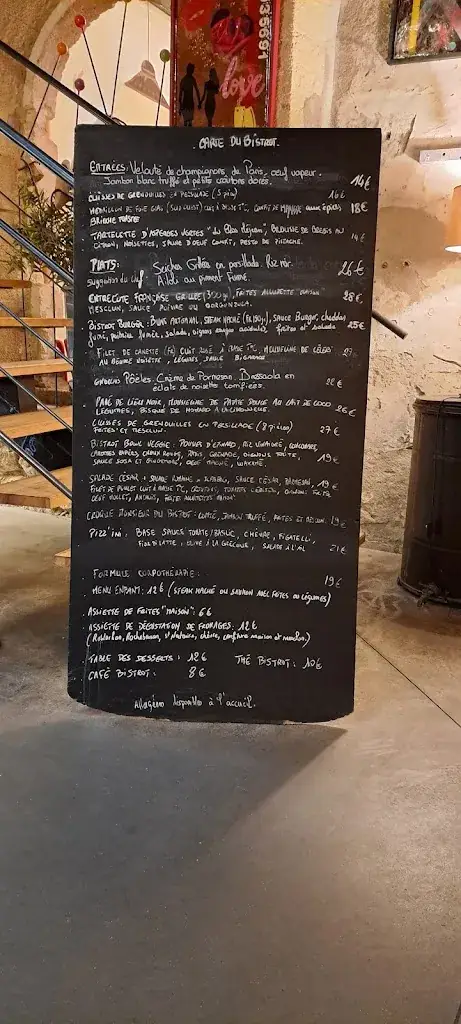 love
CARTE DU BISTROT.
ENTRÉES: Velouté de champignons de Paris, œuf vapeur.
Jambon blanc truffé et petits croûtons dorés. 14€
CUISSES DE GRENOUILLES EN PERSILLADE (5 pièces) 16€
MÉDAILLON DE FOIE GRAS
18€
BRIOCHE TOASTÉE
TARTELETTE D'ASPERGES VERTES
BREBIS AU
CITRON, NOISETTES, JAUNE D'OEUF CONFIT, PESTO DE PISTACHE. 14€
PLATS: Seiches Grillées en persillade. Riz noir. 26€
Suggestion du chef Aïoli au piment Fumé.
ENTRECÔTE FRANÇAISE GRILLÉE (300gr), FRITES ALLUMETTE MAISON 28€
MESCLUN, SAUCE POIVRE OU GORGONZOLA.
BISTROT BURGER: BUNS ARTISANAL, STEAK HACHÉ (FR.180gr), SAUCE Burger, cheddar 25€
fumé, poitrine fumée, salade, oignons rouges acidulés, frites et salade
FILET DE CANETTE (FR) CUIT ROSÉ À BASSE T°C, MOUSSELINE DE CÉLERI
LÉGUMES, SAUCE BIGARADE
Gnocchi Poêlés. Crème de Parmesan. Bressaola en 22€
éclats de noisettes torréfiées.
PAVÉ DE LIEU NOIR, MOUSSELINE DE PATATE DOUCE AU LAIT DE COCO 26€
LÉGUMES, BISQUE DE HOMARD À LA CITRONNELLE.
CUISSES DE GRENOUILLES EN PERSILLADE (8 pièces) 27€
FRITES ET MESCLUN.
BISTROT BOWL VEGGIE: RIZ VINAIGRÉ, CONCOMBRES,
CAROTTES RÂPÉES, CHOUX ROUGES, RADIS, GRENADE, 19€
SAUCE SOJA ET GINGEMBRE, WAKAMÉ.
SALADE CÉSAR: SALADE ROMAINE SAUCE CÉSAR, PARMESAN, 19€
FILET DE POULET CUIT À BASSE T°C, CROÛTONS, TOMATES CERISES, OIGNONS FRITS,
OEUF MOLLET, ANCHOIS,
CROQUE MONSIEUR DU BISTROT: COMTÉ, JAMBON TRUFFÉ, FRITES ET MESCLUN. 19€
PIZZ'INI: BASE SAUCE TOMATE/BASILIC, CHÈVRE, FIGATELLI,
FIOR DI LATTE, OLIVE À LA GRECQUE, SALADE À L'AIL 21€
FORMULE CORPOTHÉRAPIE: 19€
MENU ENFANT: 12€ (STEAK HACHÉ OU SAUMON AVEC FRITES OU LÉGUMES)
ASSIETTE DE FRITES "MAISON": 6€
ASSIETTE DE DÉGUSTATION DE FROMAGES: 12€
(Reblochon, Rocheboran, St Nectaire, chèvre, confiture maison et mesclun.)
TABLE DES DESSERTS: 12€ THÉ BISTROT: 10€
CAFÉ BISTROT: 8€
Allergènes disponibles à l'accueil.